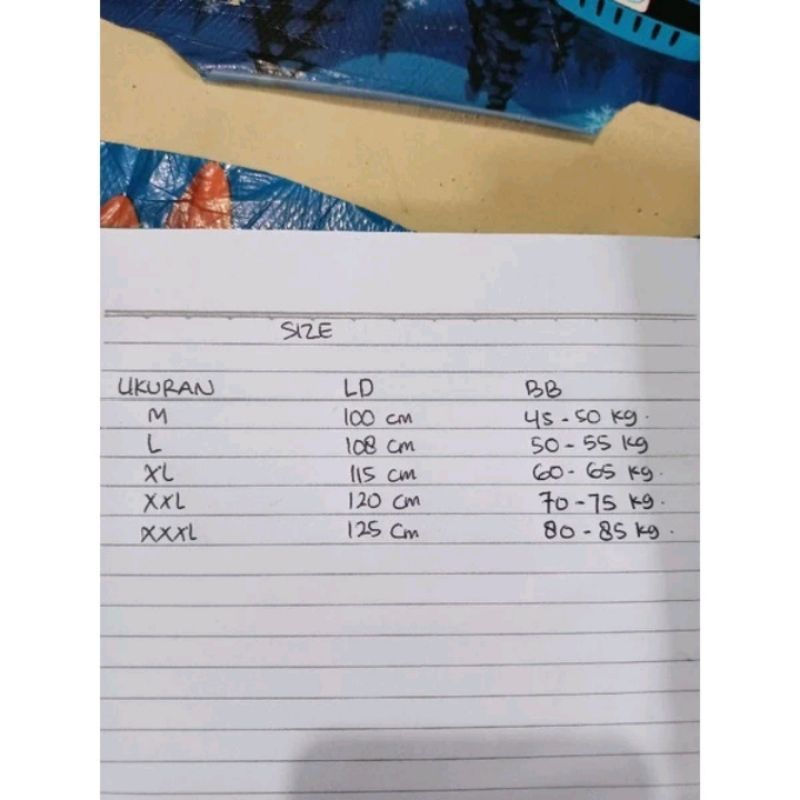 SIZE
UKURAN LD BB
M 100 cm 45-50 kg.
L 108 cm 50-55 kg
XL 115 cm 60-65 kg.
XXL 120 cm 70-75 kg.
XXXL 125 cm 80-85 kg.